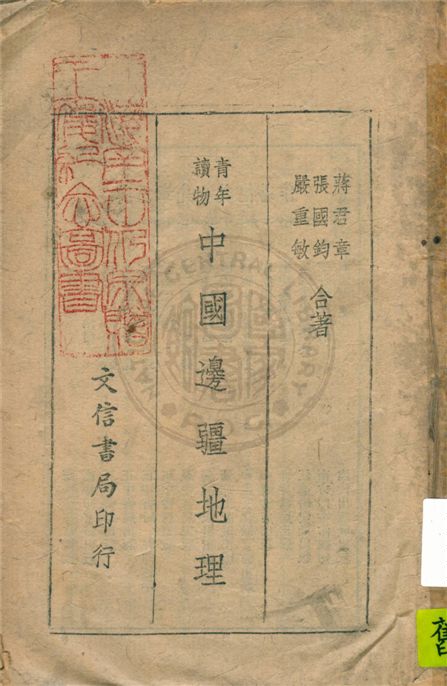 蔣君章
張國鈞
嚴重敏
合著
青年
讀物
中國邊疆地理
文信書局印行
舊